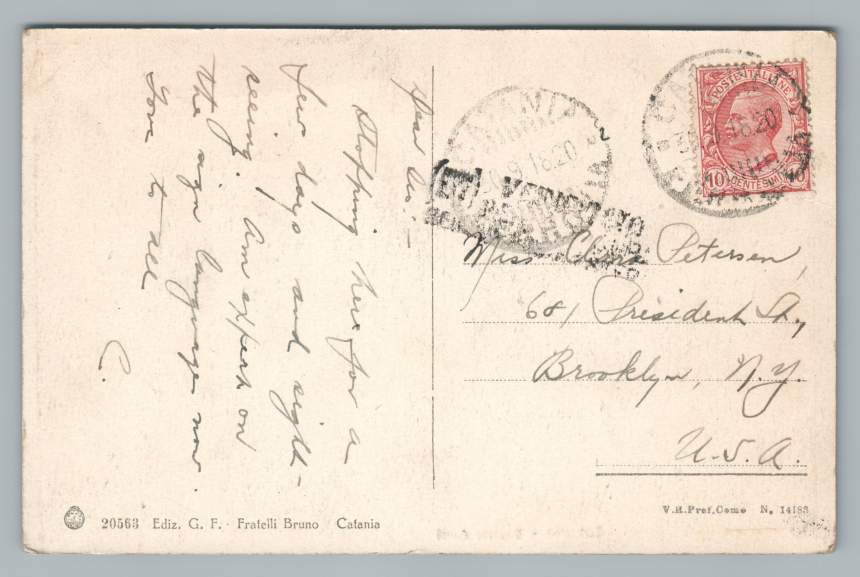 Dear Sis:-
Stopping here for a
few days and sight-
seeing. Am expert on
the sign language now.
Love to all
C.
POSTE ITALIANE
10 CENTESIMI 10
18.20
18.20
VERIFICATO
Miss Clara Petersen,
681 President St.,
Brooklyn, N.Y.
U.S.A.
20563 Ediz. G. F. - Fratelli Bruno Catania
V.R.Pref.Como N. 14183